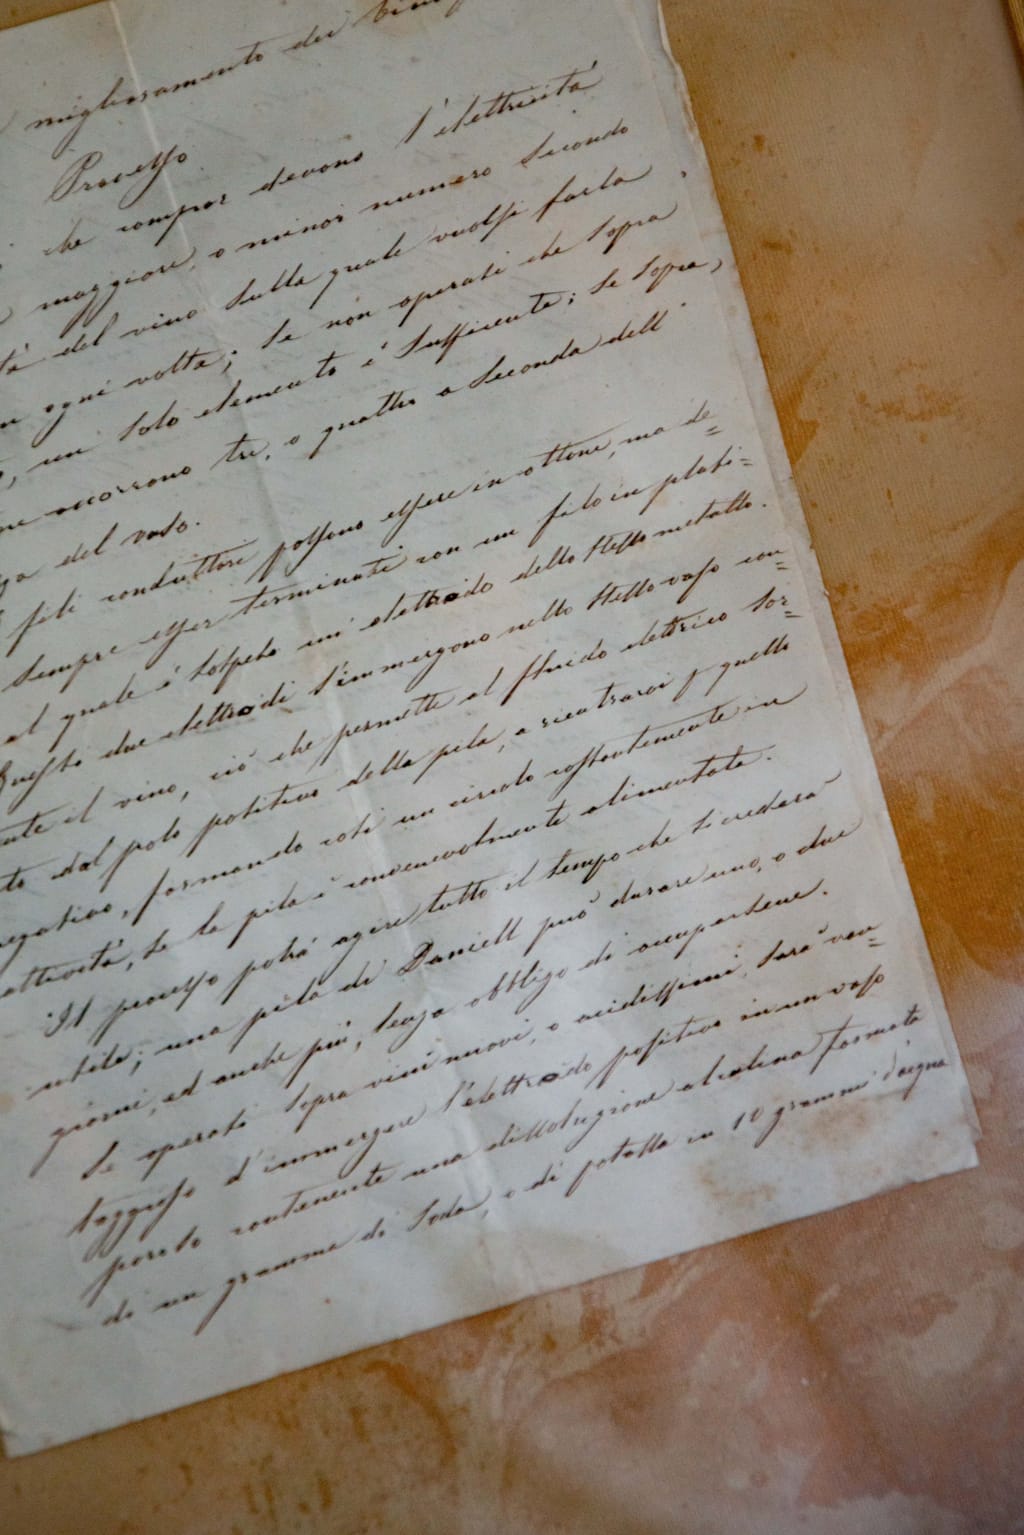 miglioramento dei Vini
Processo
che compor devono l'elettricità
maggiore, o minor numero secondo
tà del vino sulla quale vuolsi farla
ogni volta; se non operati che sopra
, un solo elemento è sufficiente; se sopra,
occorrono tre, o quattro a seconda dell'
za del vaso.
fili conduttori possono essere in ottone, ma de=
sempre esser terminati con un filo in plati=
al quale è sospeso un' elettrodo dello stesso metallo.
Questi due elettrodi s'immergono nello stesso vaso con=
ente il vino, ciò che permette al fluido elettrico sor=
to dal polo positivo della pila, a rientrarvi p quello
negativo, formando così un circolo costantemente in
attività, se la pila è convenevolmente alimentata.
Il processo potrà agire tutto il tempo che si crederà
utile; una pila di Daniell può durare uno, o due
giorni, ed anche più, senza obbligo di occuparsene.
Se operati sopra vini nuovi, o acidissimi, sarà van=
taggioso d'immergere l'elettrodo positivo in un vaso
poroso contenente una dissoluzione alcalina formata
di un gramma di Soda, o di potassa in 10 grammi d'acqua